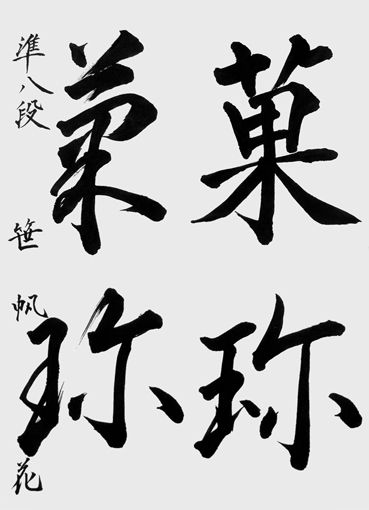 菓珎
菓珎
準八段 笹帆花